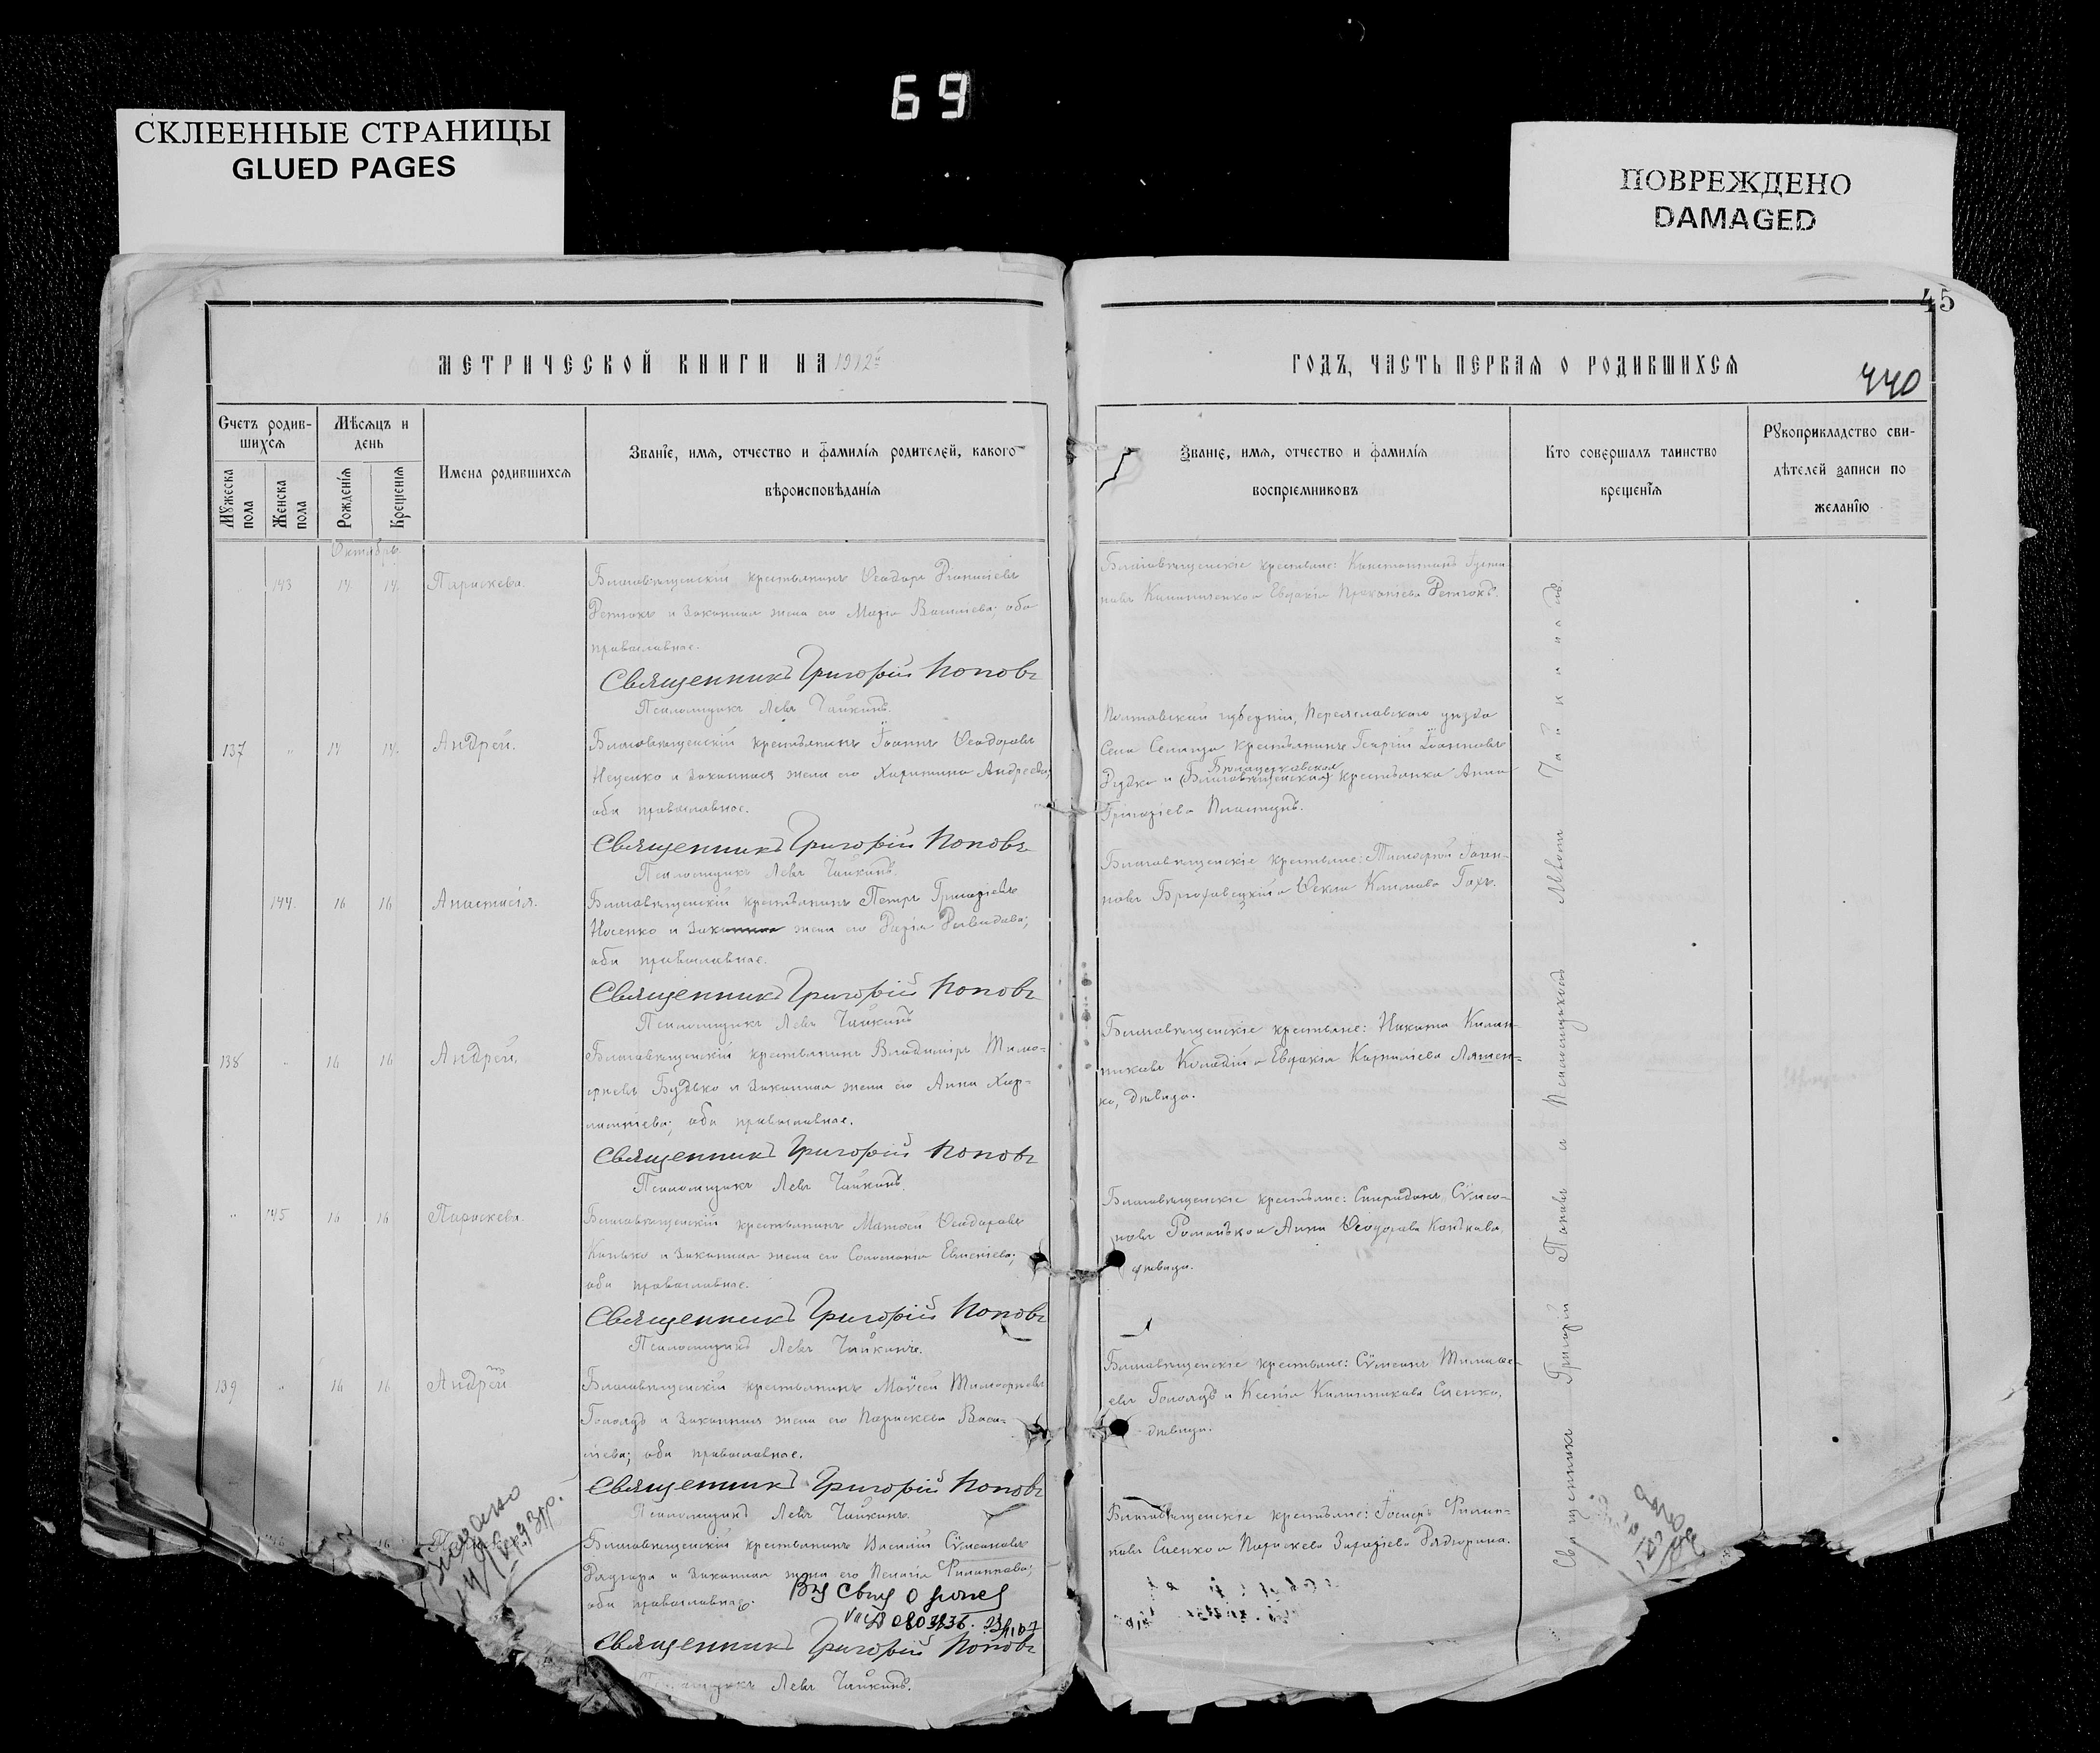 69
СКЛЕЕННЫЕ СТРАНИЦЫ
GLUED PAGES
ПОВРЕЖДЕНО
DAMAGED
45
МЕТРИЧЕСКОЙ КНИГИ НА 1912й
ГОДЪ, ЧАСТЬ ПЕРВАЯ О РОДИВШИХСЯ
440
Счетъ родив-
шихся
Мужеска пола
Женска пола
Мѣсяцъ и
день
Рожденія
Крещенія
Имена родившихся
Званіе, имя, отчество и фамилія родителей, какого
вѣроисповѣданія
Званіе, имя, отчество и фамилія
воспріемниковъ
Кто совершалъ таинство
крещенія
Рукоприкладство сви-
дѣтелей записи по
желанію
Октябрь
143 14 14 Параскева.
Благовѣщенскій крестьянинъ Ѳеодоръ
и законная жена его Марія Василіева; оба
православные.
Священникъ Григорій Поповъ
Псаломщикъ Левъ Чайкинъ.
Благовѣщенскіе крестьяне: Константинъ
Евдокія Прокопіева
137 " 14 14. Андрей.
Благовѣщенскій крестьянинъ Іоаннъ Ѳеодоровъ
Нещенко и законная жена его Харитина Андреева;
оба православные.
Священникъ Григорій Поповъ
Псаломщикъ Левъ Чайкинъ.
Полтавской губерніи, Переяславского уѣзда
Села крестьянинъ Георгій Іоанновъ
Рудко и (Благовѣщенская) крестьянка Анна
Григоріева Пластунъ.
144. 16 16 Анастасія.
Благовѣщенскій крестьянинъ Петръ Григоріевъ
Носенко и законная жена его Давидова;
оба православные.
Священникъ Григорій Поповъ
Псаломщикъ Левъ Чайкинъ
Благовѣщенскіе крестьяне: Тимофей Іоан-
новъ и Ѳекла Климова
138 " 16 16 Андрей.
Благовѣщенскій крестьянинъ Владиміръ Тимо-
ѳеевъ Будько и законная жена его Анна Хар-
лампіева; оба православные.
Священникъ Григорій Поповъ
Псаломщикъ Левъ Чайкинъ.
Благовѣщенскіе крестьяне: Никита Калин-
никовъ и Евдокія Корниліева Ляшен-
ко, дѣвица.
" 145 16 16 Параскева.
Благовѣщенскій крестьянинъ Матѳей Ѳеодоровъ
Конько и законная жена его Соломонія Евменіева;
оба православные.
Священникъ Григорій Поповъ
Псаломщикъ Левъ Чайкинъ.
Благовѣщенскіе крестьяне: Спиридонъ Сѵмео-
новъ Романько и Анна Ѳеодорова Конькова,
дѣвица.
139 " 16 16 Андрей
Благовѣщенскій крестьянинъ Моѵсей Тимоѳеевъ
Гололудъ и законная жена его Параскева Васи-
ліева; оба православные.
Священникъ Григорій Поповъ
Псаломщикъ Левъ Чайкинъ.
Благовѣщенскіе крестьяне: Сѵмеонъ Тимоѳе-
евъ Гололудъ и Ксенія Калинникова Саенко,
дѣвица.
16
Благовѣщенскій крестьянинъ Василій Сѵмеоновъ
и законная жена его Пелагія Филиппова;
оба православные.
Священникъ Григорій Поповъ
Левъ Чайкинъ.
Благовѣщенскіе крестьяне: Іосифъ Филип-
повъ Саенко и Параскева
Священникъ Григорій Поповъ и Псаломщикъ Левъ Чайкинъ.